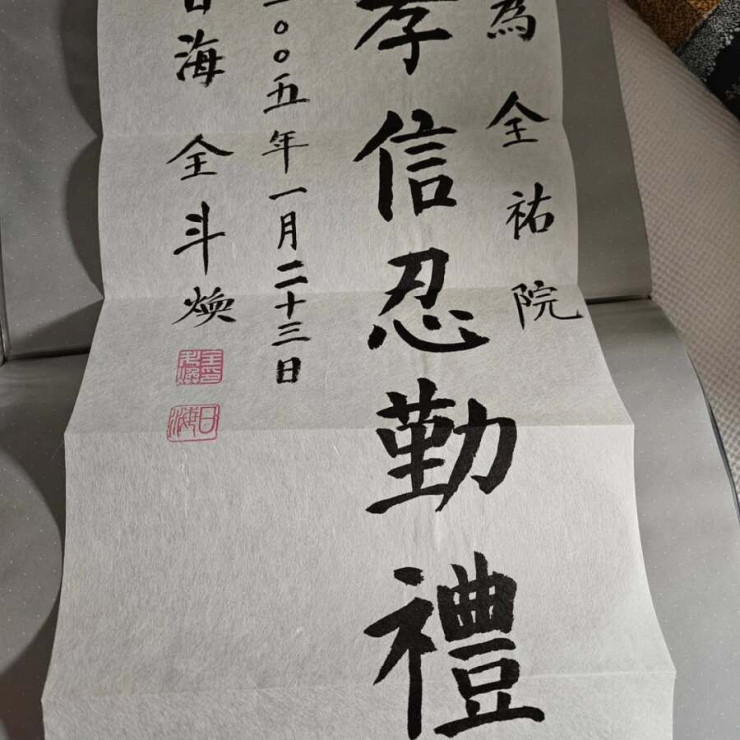 為全祐院
孝信忍勤禮
二〇〇五年一月二十三日
日海 全斗煥
全斗煥印
日海